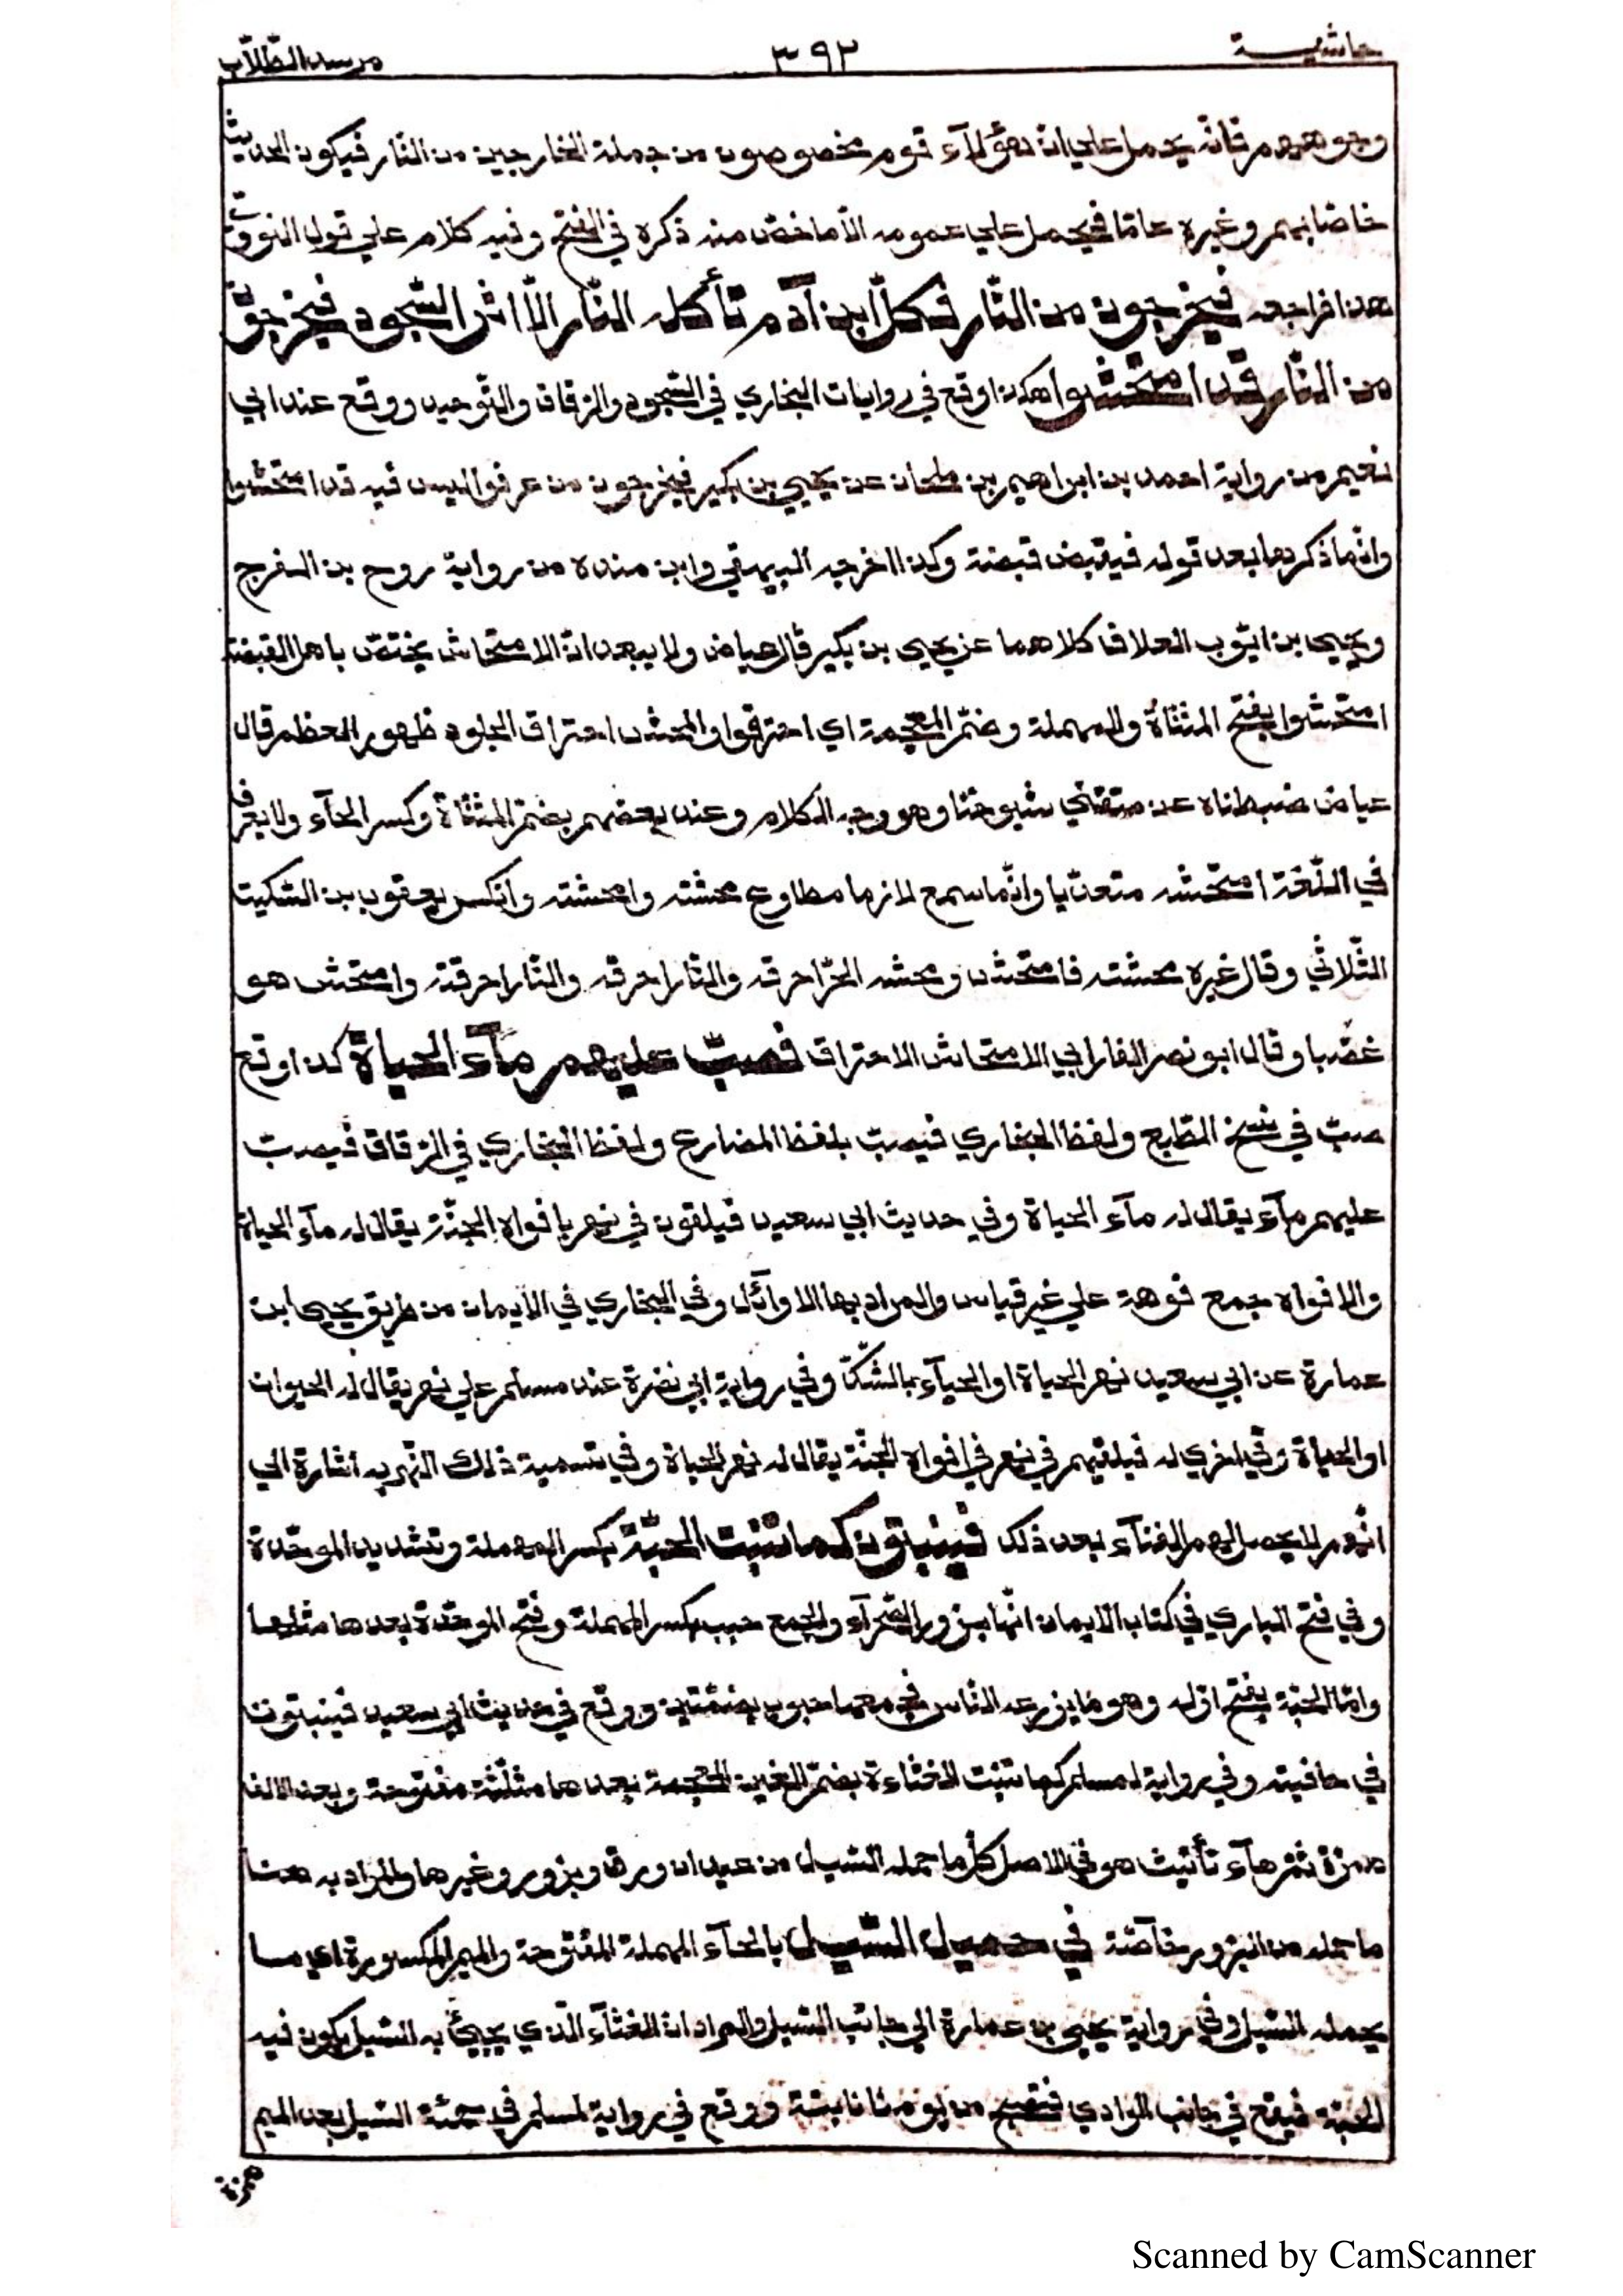 حاشيـــة
٣٩٢
مرسد الطّلّاب
وجوههم فانّه يحمل علي انّ هؤلآء قوم مخصوصون من جملة الخارجين من النّار فيكون الحديث
خاصّا بهم وغيره عامّا فيحمل علي عمومه الّا ما خصّ منه ذكره في الفتح وفيه كلام علي قول النووي
هذا فراجعه فيخرجون من النّار فكلّ ابن آدم تأكله النّار الّا اثر السّجود فيخرجون
من النّار قد امتحشوا هكذا وقع في روايات البخاري في السّجود والرّقاق والتّوحيد ووقع عند ابي
نعيم من رواية احمد بن ابراهيم بن ملحان عن يحيي بن بكير فيخرجون من عرفوا ليس فيه قد امتحشوا
وانّما ذكرها بعد قوله فيقبض قبضة وكذا اخرجه البيهقي وابن منده من رواية روح بن الفرج
ويحيي بن ايّوب العلاف كلاهما عن يحيي بن بكير قال عياض ولا يبعد انّ الامتحاش يختصّ باهل القبضة
امتحشوا بفتح المثنّاة والمهملة وضمّ المعجمة اي احترقوا والمحش احتراق الجلود ظهور العظم قال
عياض ضبطناه عن متقني شيوخنا وهو وجه الكلام وعند بعضهم بضمّ المثنّاة وكسر الحآء ولا يعرف
في اللّغة امتحشه متعدّيا وانّما سمع لازما مطاوع محشته وامحشته وانكر يعقوب بن السّكيت
الثّلاثي وقال غيره محشته فامتحش ومحشه الحرّ احرقه والنّار احرقه والنّار احرقته وامتحش هو
غضبا وقال ابو نصر الفارابي الامتحاش الاحتراق فصبّ عليهم مآء الحياة كذا وقع
صبّ في نسخ المطابع ولفظ البخاري فيصبّ بلفظ المضارع ولفظ البخاري في الرّقاق فيصبّ
عليهم مآء يقال له مآء الحياة وفي حديث ابي سعيد فيلقون في نهر بافواه الجنّة يقال له مآء الحياة
والافواه جمع فوهة علي غير قياس والمراد بها الاوآئل وفي البخاري في الايمان من طريق يحيي ابن
عمارة عن ابي سعيد نهر الحياة او الحيآء بالشّكّ وفي رواية ابي نضرة عند مسلم علي نهر يقال له الحيوان
او الحياة وفي اخري له فيلقيهم في نهر في افواه الجنّة يقال له نهر الحياة وفي تسمية ذلك النّهر به اشارة الي
انّهم لا يحصل لهم الفنآء بعد ذلك فينبتون كما تنبت الحبّة بكسر المهملة وتشديد الموحّدة
وفي فتح الباري في كتاب الايمان انّها بزور الصّحرآء والجمع حبب بكسر المهملة وفتح الموحّدة بعدها مثلها
وامّا الحبّة بفتح اوّله وهو ما يزرعه النّاس فجمعها حبوب بضمّتين ووقع في حديث ابي سعيد فينبتون
في حافتيه وفي رواية لمسلم كما تنبت الغثاءة بضمّ الغين المعجمة بعدها مثلّثة مفتوحة وبعد الالف
همزة ثمّ هآء تأنيث هو في الاصل كلّ ما حمله السّيل من عيدان وورق وبزور وغيرها والمراد به هنا
ما حمله من البزور خآصّة في حميل السّيل بالحآء المهملة المفتوحة والميم المكسورة اي ما
يحمله السّيل وفي رواية يحيي بن عمارة الي جانب السّيل والمراد انّ الغثآء الّذي يجيئ به السّيل يكون فيه
الحبّة فيقع في جانب الوادي فتصبح من يومها نابتة ووقع في رواية لمسلم في حمئة السّيل بعد الميم
همزة
Scanned by CamScanner